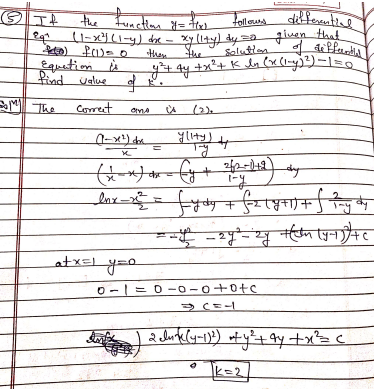 (5) If the function y = f(x) follows differential
Eqn (1-x²)(1-y) dx - xy(1+y) dy = 0 given that
f(1) = 0 then the solution of differential
equation is y²+4y+x²+K ln(x(1-y)²)-1=0
find value of K.
The correct ans is (2).
(1-x²) dx / x = y(1+y) / 1-y dy
(1/x - x) dx = (-y + 2(2-1)+2 / 1-y) dy
ln x - x²/2 = ∫-y dy + ∫-2(y+1) + ∫ 2/1-y dy
= -y²/2 - 2y² - 2y + (ln (y-1)²) + c
at x=1 y=0
0-1 = 0-0-0+0+c
⇒ c = -1
2 ln(x(y-1)²) + y²+4y+x² = c
K=2